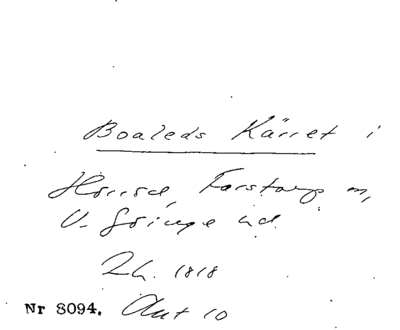 Boaleds Kärret i
Hörröd, Farstorp m,
V. Göinge hd.
Lh. 1818
Nr 8094. Akt 10